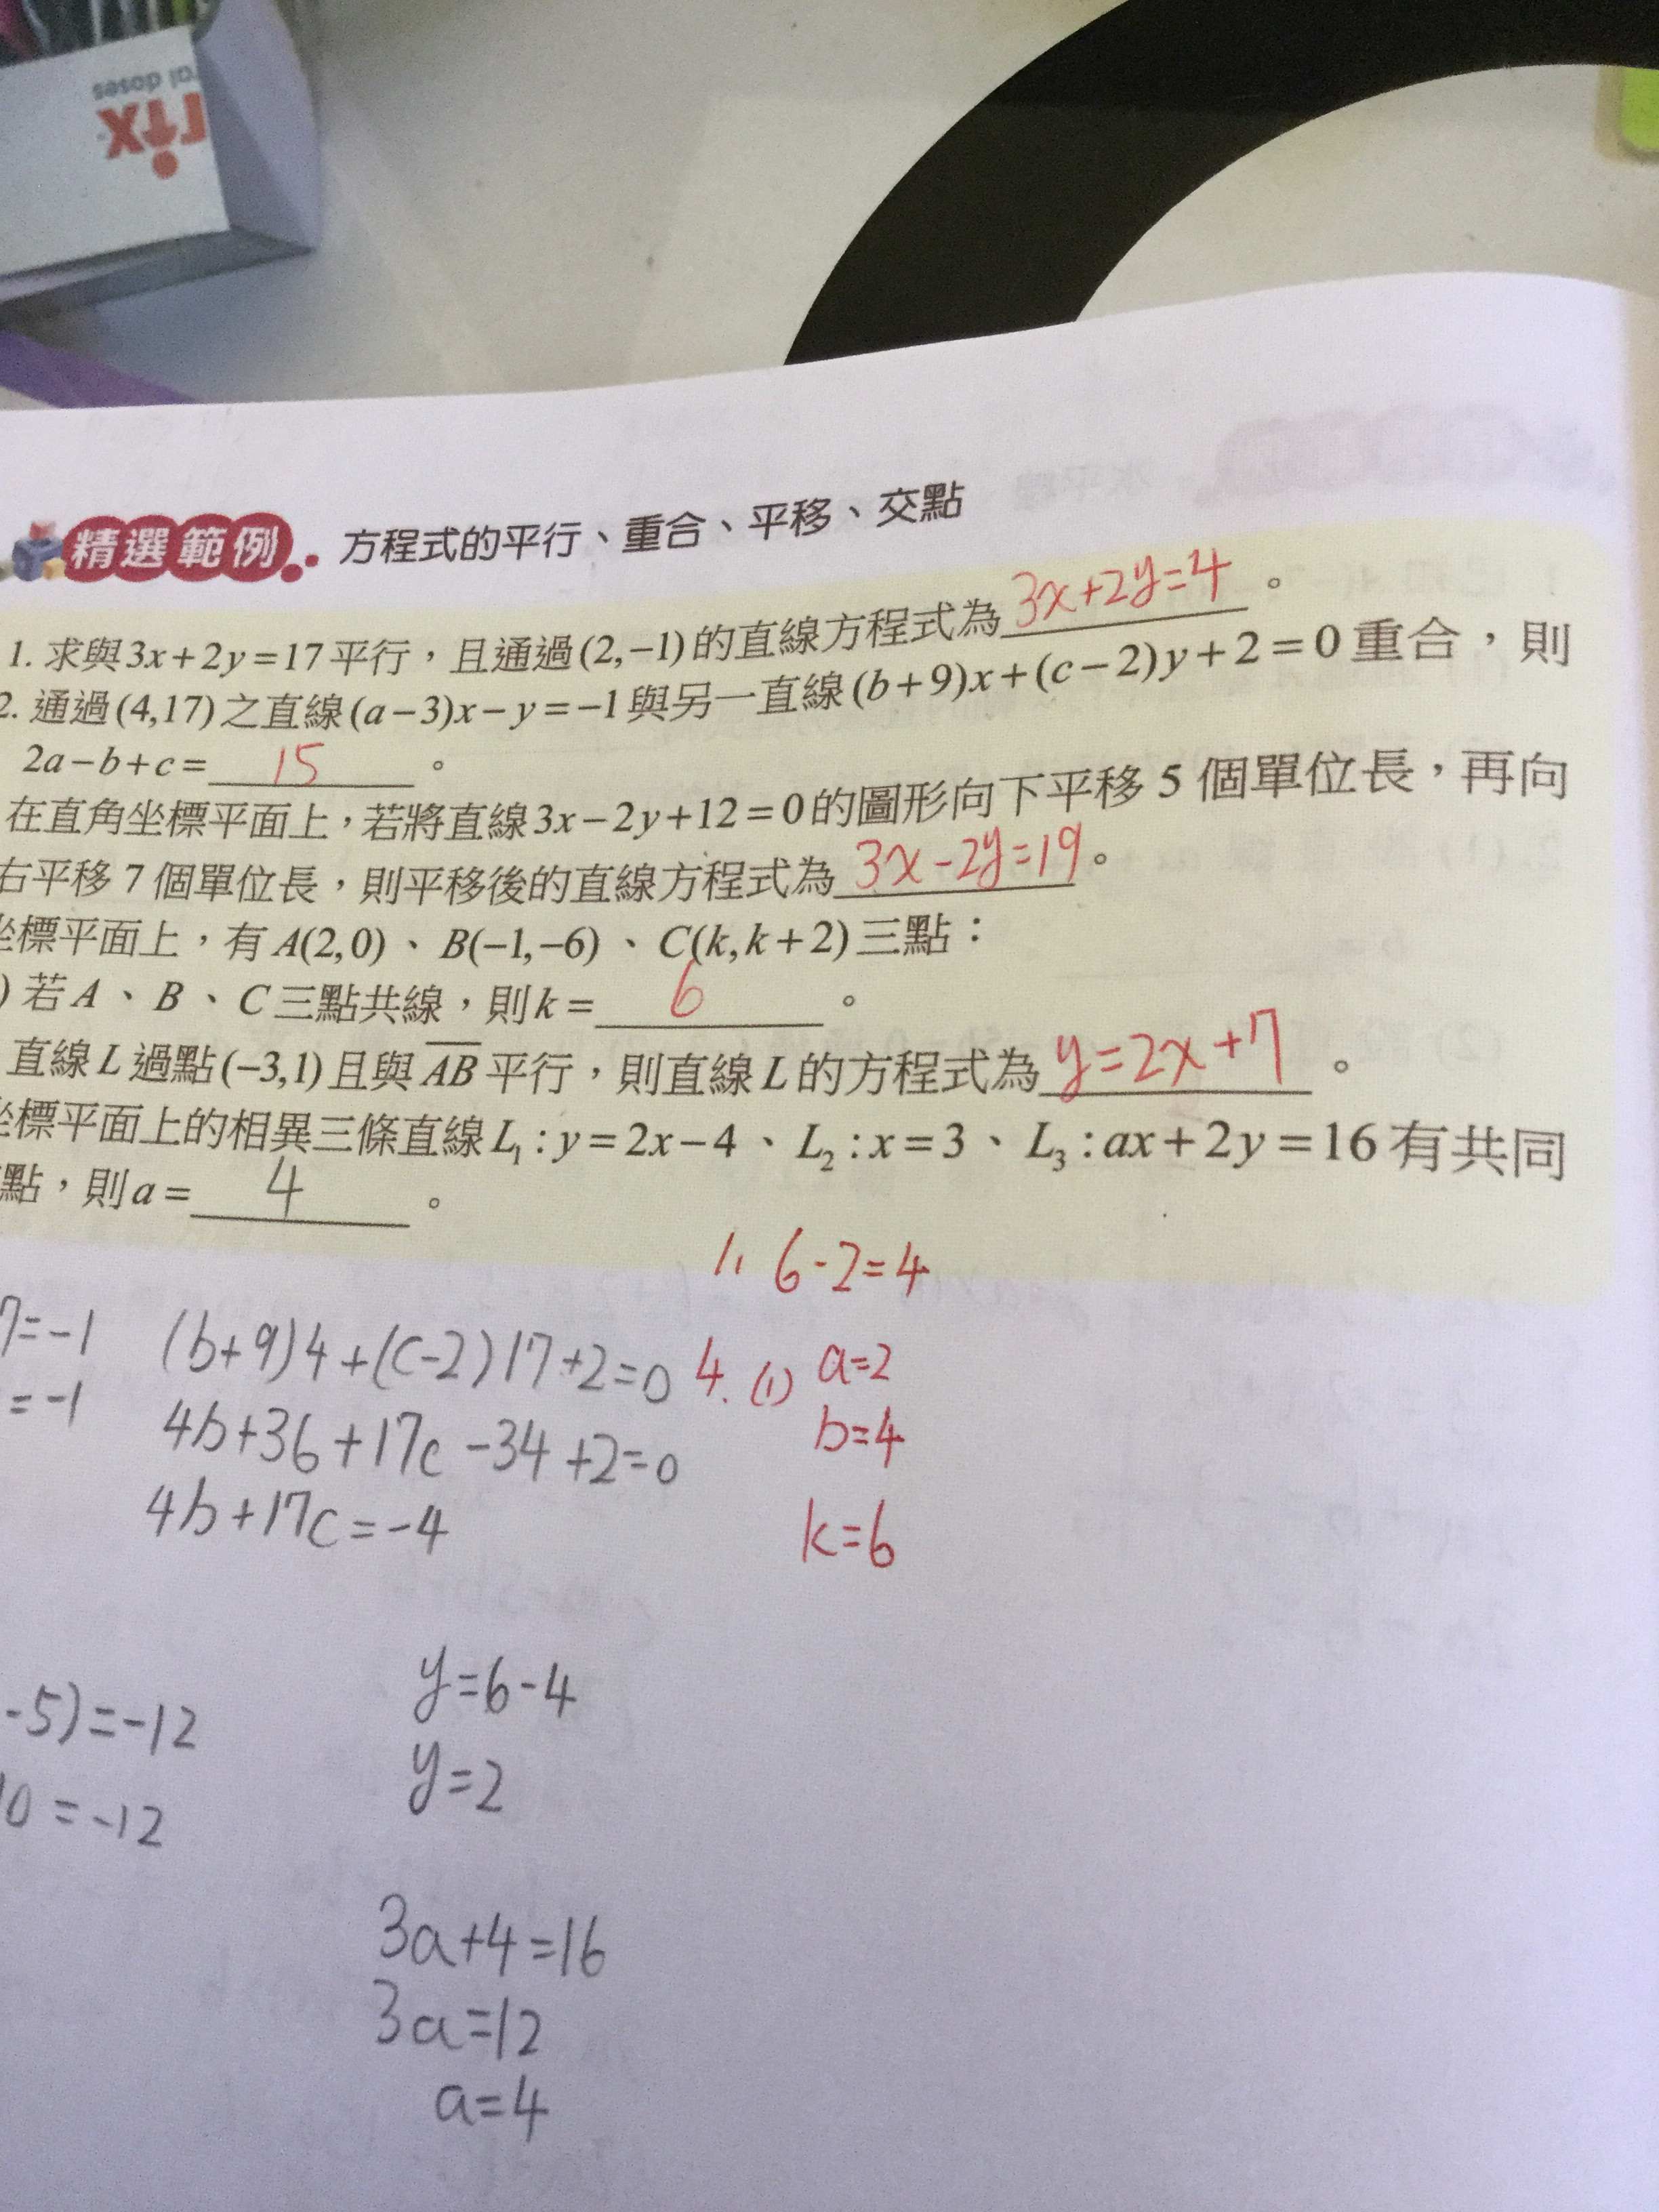 ral doses
rix
精選範例 方程式的平行、重合、平移、交點
1. 求與3x+2y=17平行，且通過(2,−1)的直線方程式為 3x+2y=4 。
2. 通過(4,17)之直線(a−3)x−y=−1與另一直線(b+9)x+(c−2)y+2=0重合，則
2a−b+c= 15 。
在直角坐標平面上，若將直線3x−2y+12=0的圖形向下平移 5 個單位長，再向
右平移 7 個單位長，則平移後的直線方程式為 3x-2y=19 。
坐標平面上，有A(2,0)、B(−1,−6)、C(k,k+2)三點：
) 若A、B、C三點共線，則k= 6 。
直線L過點(−3,1)且與AB平行，則直線L的方程式為 y=2x+7 。
坐標平面上的相異三條直線L₁:y=2x−4、L₂:x=3、L₃:ax+2y=16有共同
點，則a= 4 。
1. 6-2=4
7=-1 (b+9)4+(c-2)17+2=0 4. (1) a=2
=-1 4b+36+17c-34+2=0 b=4
4b+17c=-4 k=6
y=6-4
-5)=-12
y=2
10=-12
3a+4=16
3a=12
a=4